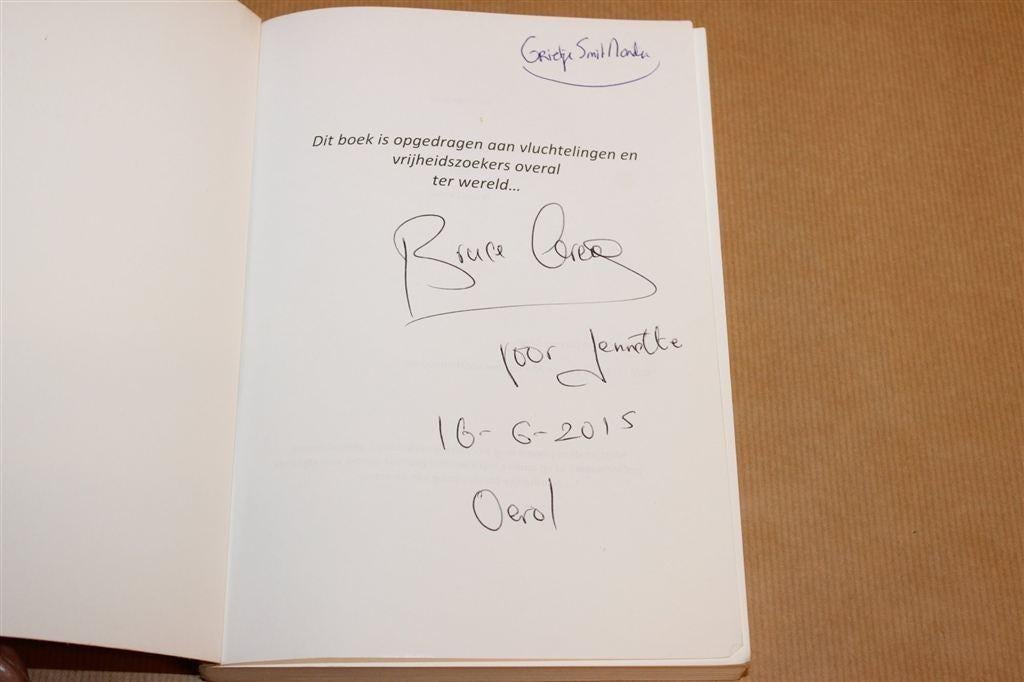 Grietje Smit
Dit boek is opgedragen aan vluchtelingen en
vrijheidszoekers overal
ter wereld...
Bruce
voor Jennette
16-6-2015
Oerol